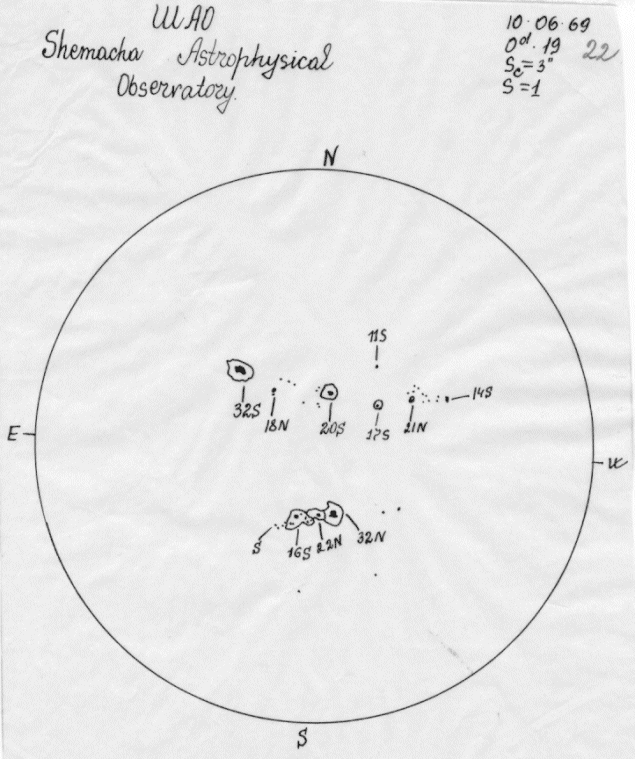 ШАО
Shemacha Astrophysical
Observatory.
10.06.69
0ᵈ.19 22
S꜀=3"
S=1
N
11S
14S
32S 18N 20S 17S 21N
E
W
S 16S 22N 32N
S